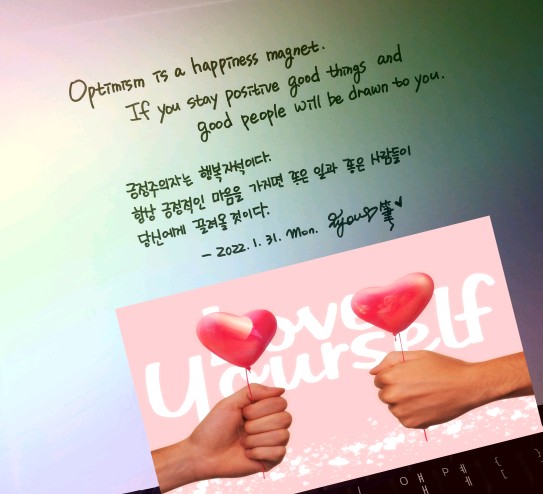 Optimism is a happiness magnet.
If you stay positive good things and
good people will be drawn to you.
긍정주의자는 행복자석이다.
항상 긍정적인 마음을 가지면 좋은 일과 좋은 사람들이
당신에게 끌려올 것이다.
- 2022. 1. 31. Mon.
Love
Yourself
ㅐ ㅔ {